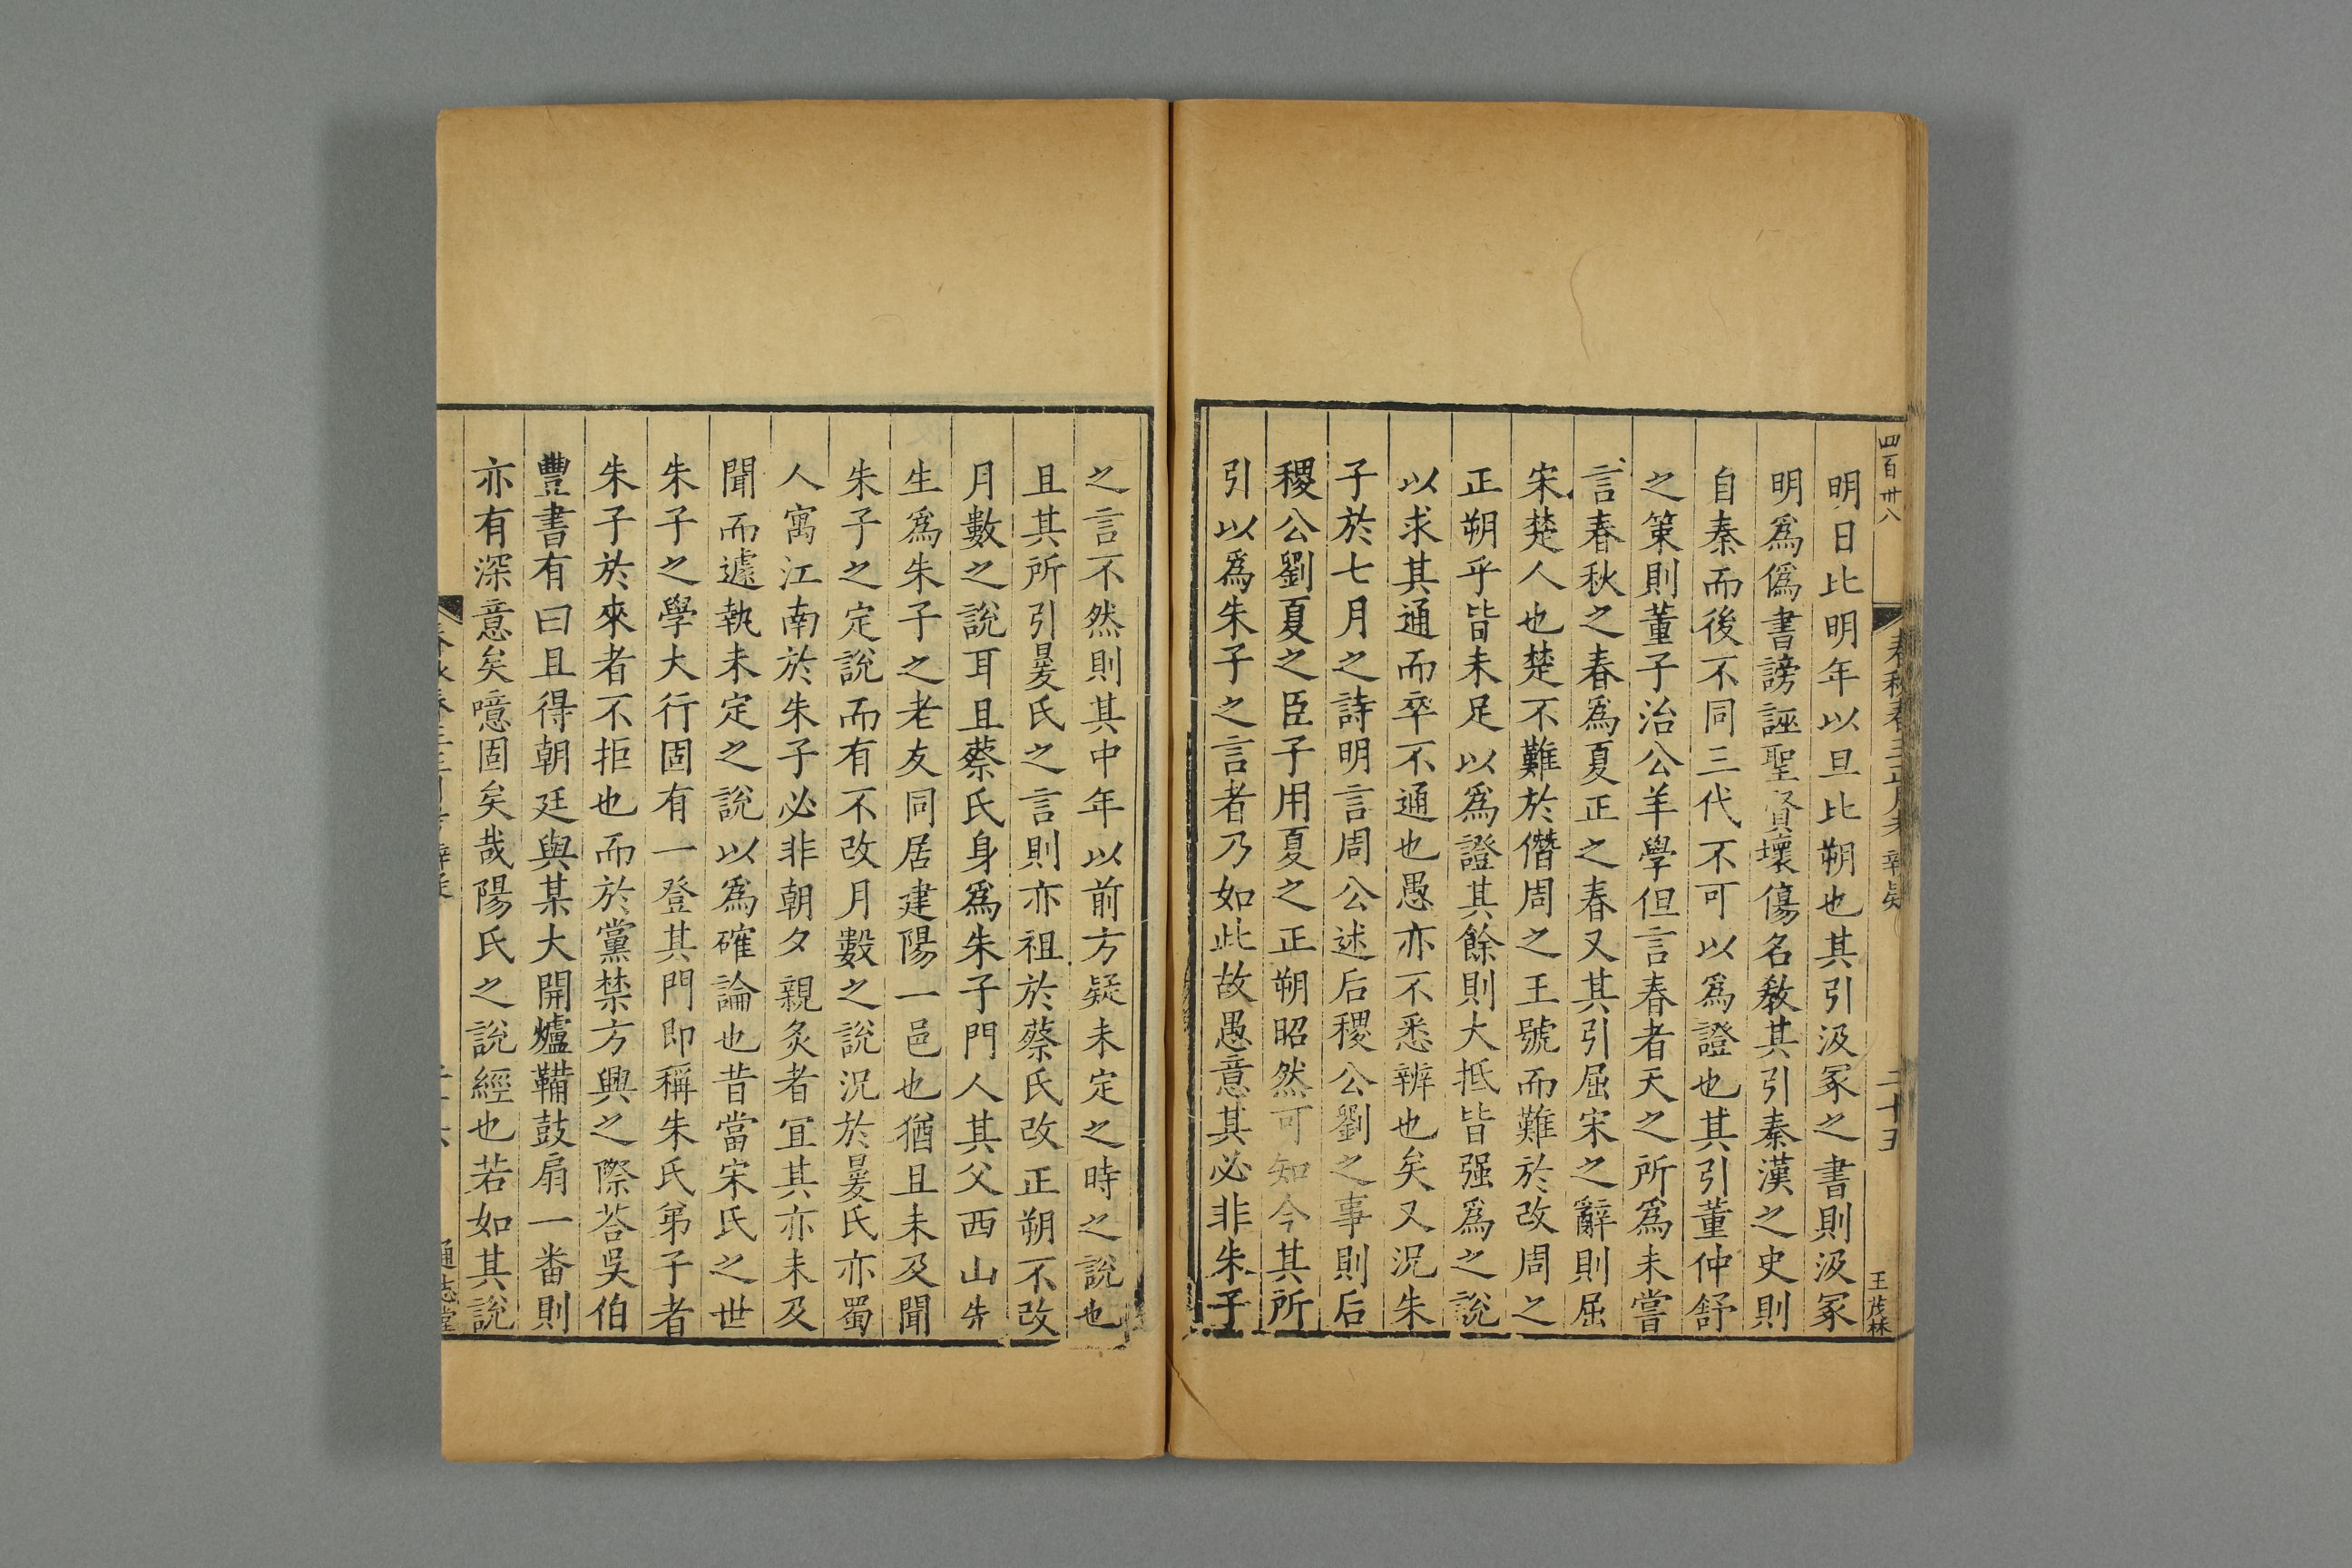 四百卅八
春秋春王正月考 辨疑
二十五
王茂林
明日比明年以旦比朔也其引汲冢之書則汲冢
明爲僞書謗誣聖賢壞傷名敎其引秦漢之史則
自秦而後不同三代不可以爲證也其引董仲舒
之策則董子治公羊學但言春者天之所爲未嘗
言春秋之春爲夏正之春又其引屈宋之辭則屈
宋楚人也楚不難於僭周之王號而難於改周之
正朔乎皆未足以爲證其餘則大抵皆强爲之說
以求其通而卒不通也愚亦不悉辨也矣又况朱
子於七月之詩明言周公述后稷公劉之事則后
稷公劉夏之臣子用夏之正朔昭然可知今其所
引以爲朱子之言者乃如此故愚意其必非朱子
之言不然則其中年以前方疑未定之時之說也
且其所引晏氏之言則亦祖於蔡氏改正朔不改
月數之說耳且蔡氏身爲朱子門人其父西山先
生爲朱子之老友同居建陽一邑也猶且未及聞
朱子之定說而有不改月數之說况於晏氏亦蜀
人寓江南於朱子必非朝夕親炙者宜其亦未及
聞而遽執未定之說以爲確論也昔當宋氏之世
朱子之學大行固有一登其門即稱朱氏弟子者
朱子於來者不拒也而於黨禁方興之際荅吳伯
豐書有曰且得朝廷與某大開爐鞴鼓扇一番則
亦有深意矣噫固矣哉陽氏之說經也若如其說
通志堂